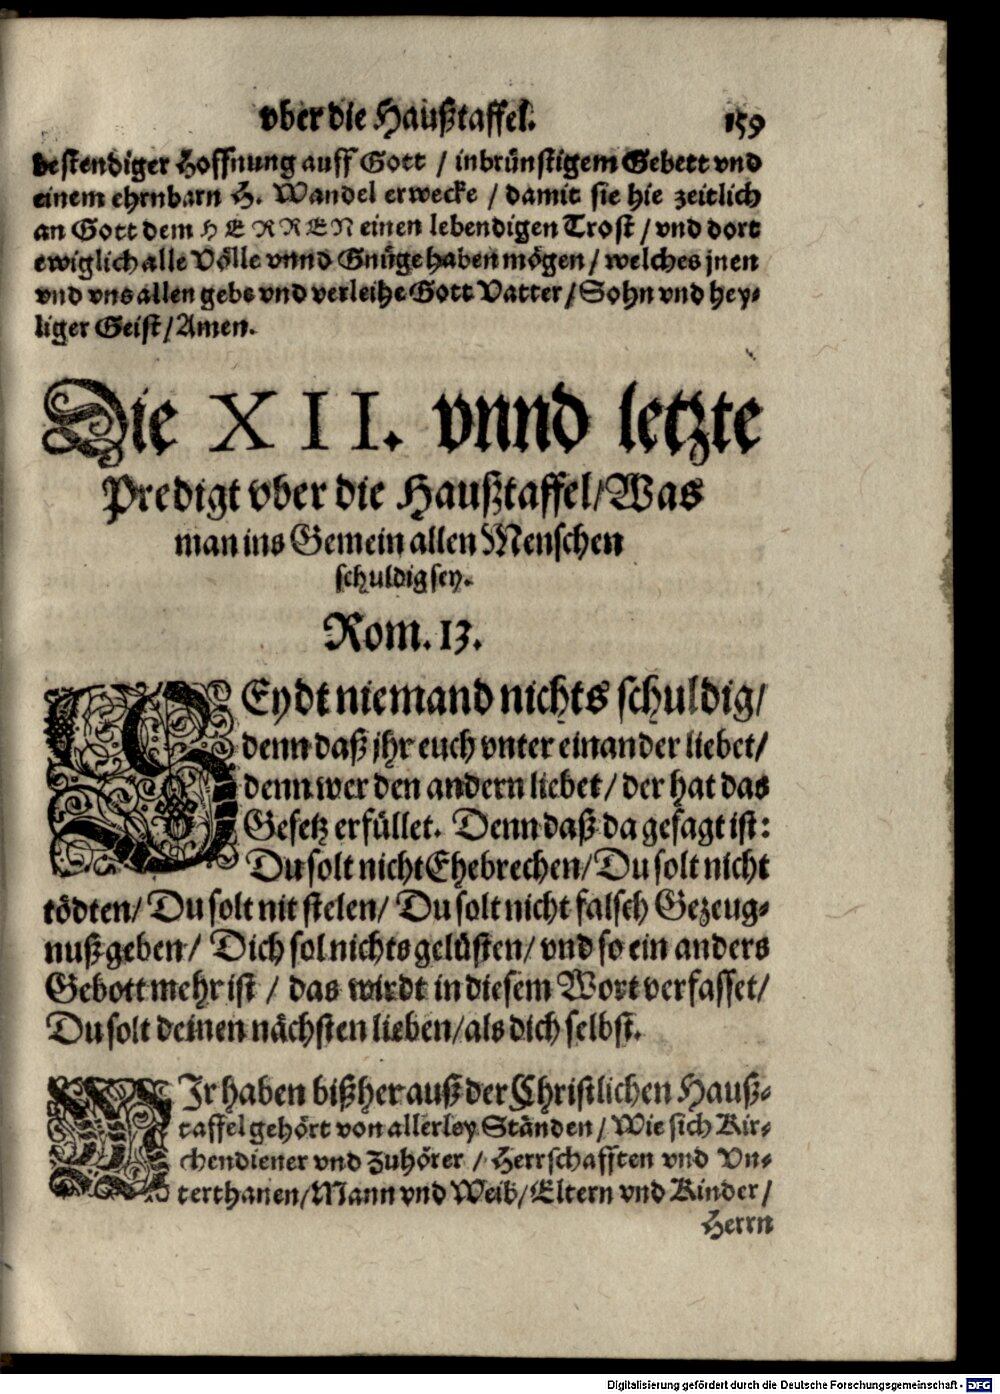 vber die Haußtaffel.
159
bestendiger Hoffnung auff Gott / inbrünstigem Gebett vnd
einem ehrnbarn H. Wandel erwecke / damit sie hie zeitlich
an Gott dem HERREN einen lebendigen Trost / vnd dort
ewiglich alle Völle vnnd Gnüge haben mögen / welches jnen
vnd vns allen gebe vnd verleihe Gott Vatter / Sohn vnd hey-
liger Geist / Amen.
Die XII. vnnd letzte
Predigt vber die Haußtaffel / Was
man ins Gemein allen Menschen
schuldig sey.
Rom. 13.
SEydt niemand nichts schuldig /
denn daß jhr euch vnter einander liebet /
denn wer den andern liebet / der hat das
Gesetz erfüllet. Denn daß da gesagt ist:
Du solt nicht Ehebrechen / Du solt nicht
tödten / Du solt nit stelen / Du solt nicht falsch Gezeug-
nuß geben / Dich sol nichts gelüsten / vnd so ein anders
Gebott mehr ist / das wirdt in diesem Wort verfasset /
Du solt deinen nächsten lieben / als dich selbst.
WIr haben bißher auß der Christlichen Hauß-
taffel gehört von allerley Ständen / Wie sich Kir-
chendiener vnd Zuhörer / Herrschafften vnd Vn-
terthanen / Mann vnd Weib / Eltern vnd Kinder /
Herrn
Digitalisierung gefördert durch die Deutsche Forschungsgemeinschaft - DFG